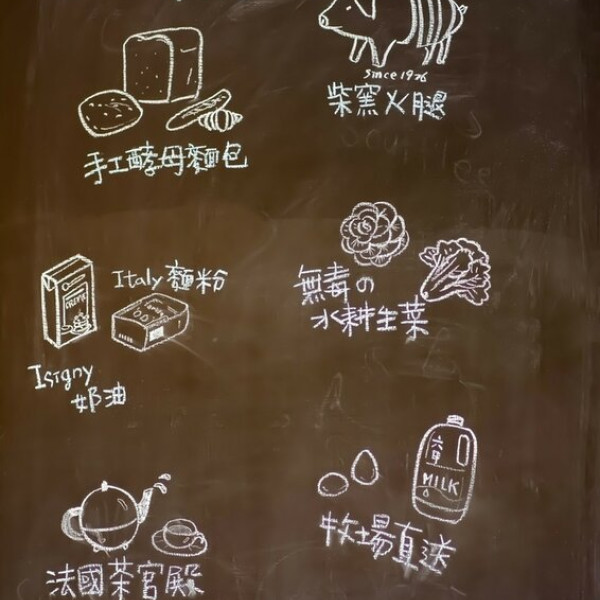 since 1976
柴窯火腿
手工酵母麵包
Italy 麵粉
Isigny
奶油
無毒の
水耕生菜
MILK
牧場直送
法國茶宮殿